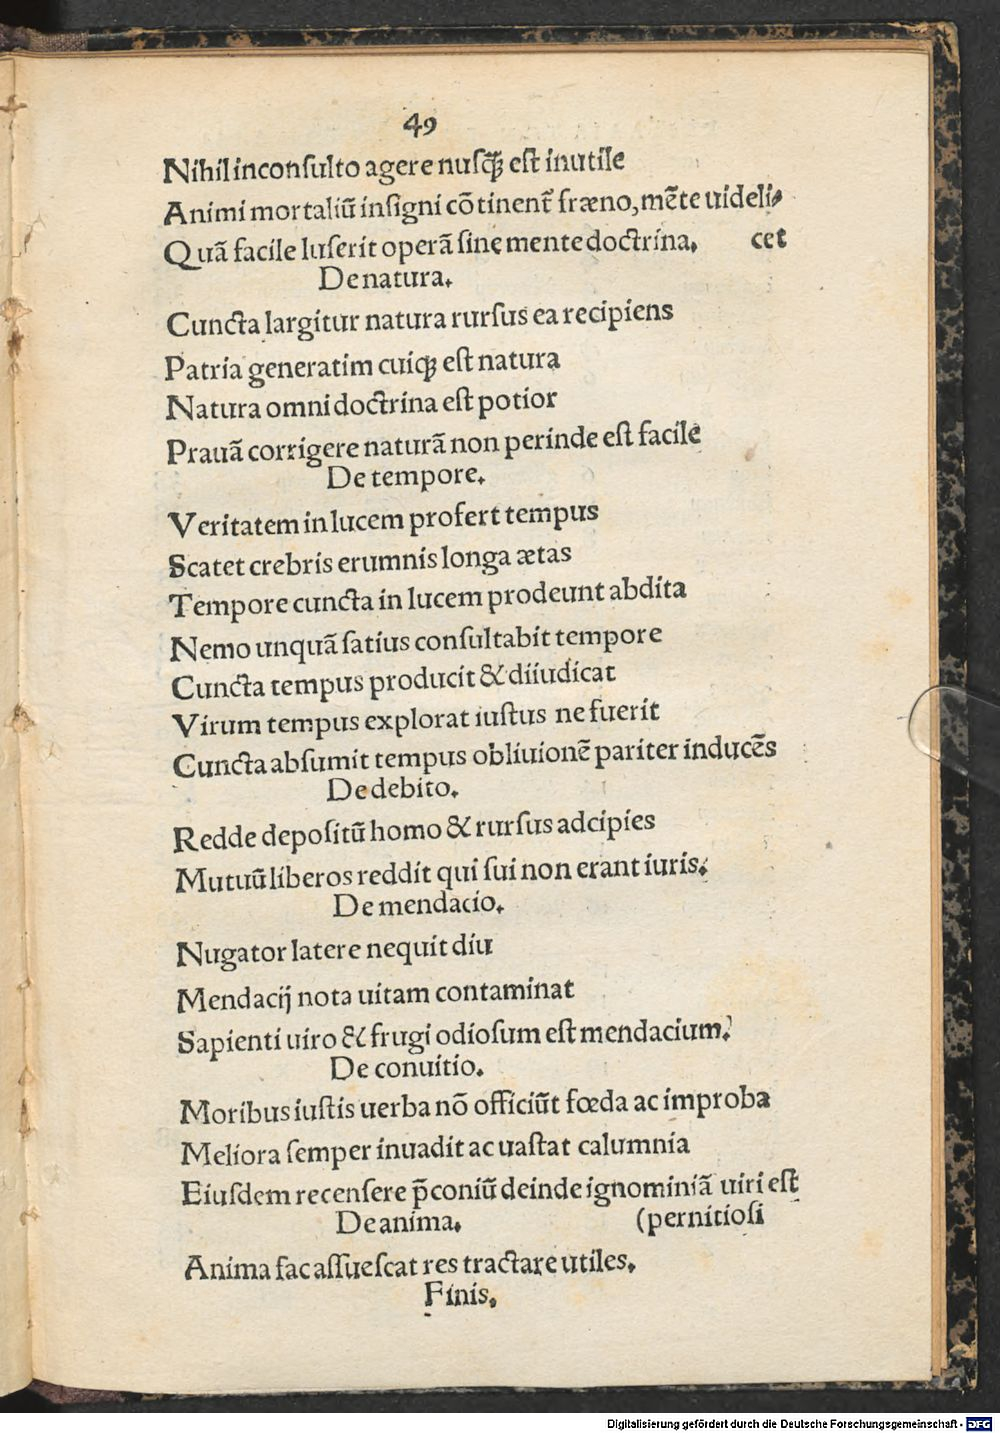 49
Nihil inconſulto agere nuſq̃ꝫ eſt inutile
Animi mortaliũ inſigni cõtinent᷑ fræno, mẽte uideli⸗
Quã facile luſerit operã ſine mente doctrina. cet
De natura.
Cuncta largitur natura rurſus ea recipiens
Patria generatim cuiqꝫ eſt natura
Natura omni doctrina eſt potior
Prauã corrigere naturã non perinde eſt facile
De tempore.
Veritatem in lucem profert tempus
Scatet crebris erumnis longa ætas
Tempore cuncta in lucem prodeunt abdita
Nemo unquã ſatius conſultabit tempore
Cuncta tempus producit & diiudicat
Virum tempus explorat iuſtus ne fuerit
Cuncta abſumit tempus obliuionẽ pariter inducẽs
De debito.
Redde depoſitũ homo & rurſus adcipies
Mutuũ liberos reddit qui ſui non erant iuris.
De mendacio.
Nugator latere nequit diu
Mendacij nota uitam contaminat
Sapienti uiro & frugi odioſum eſt mendacium.
De conuitio.
Moribus iuſtis uerba nõ officiũt fœda ac improba
Meliora ſemper inuadit ac uaſtat calumnia
Eiuſdem recenſere p̃coniũ deinde ignominiã uiri eſt
De anima. (pernitioſi
Anima fac aſſueſcat res tractare utiles.
Finis.
Digitalisierung gefördert durch die Deutsche Forschungsgemeinschaft - DFG